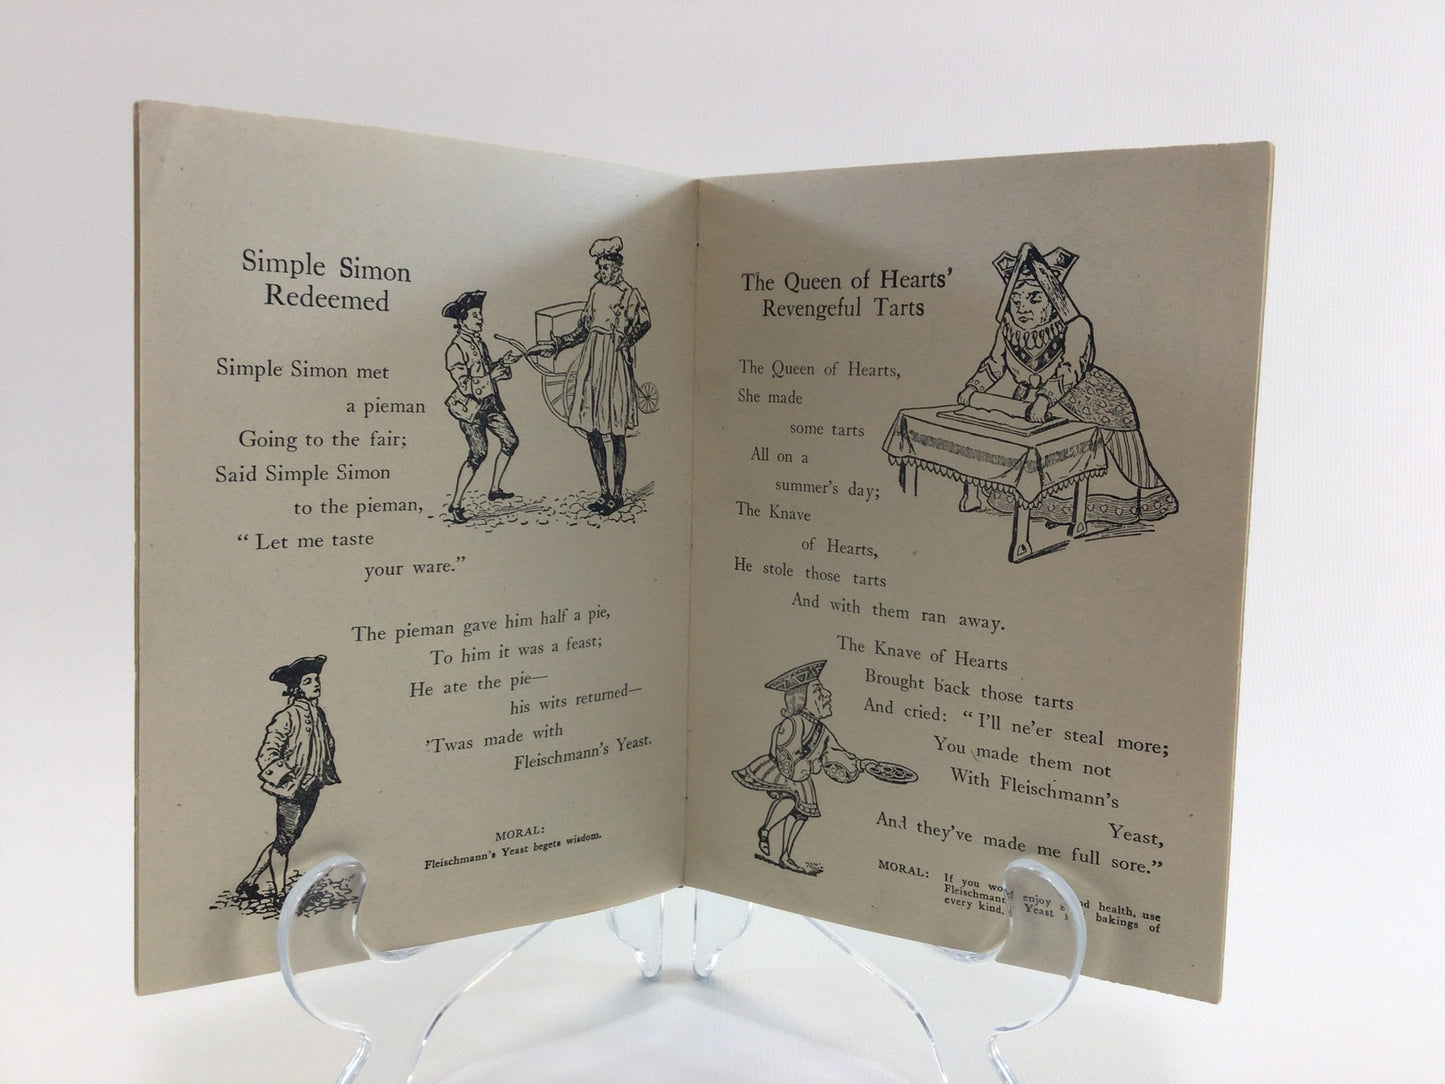 Simple Simon
Redeemed
Simple Simon met
a pieman
Going to the fair;
Said Simple Simon
to the pieman,
"Let me taste
your ware."
The pieman gave him half a pie,
To him it was a feast;
He ate the pie—
his wits returned—
'Twas made with
Fleischmann's Yeast.
MORAL:
Fleischmann's Yeast begets wisdom.
The Queen of Hearts'
Revengeful Tarts
The Queen of Hearts,
She made
some tarts
All on a
summer's day;
The Knave
of Hearts,
He stole those tarts
And with them ran away.
The Knave of Hearts
Brought back those tarts
And cried: "I'll ne'er steal more;
You made them not
With Fleischmann's
Yeast,
And they've made me full sore."
MORAL: If you enjoy health, use
Fleischmann Yeast bakings of
every kind.